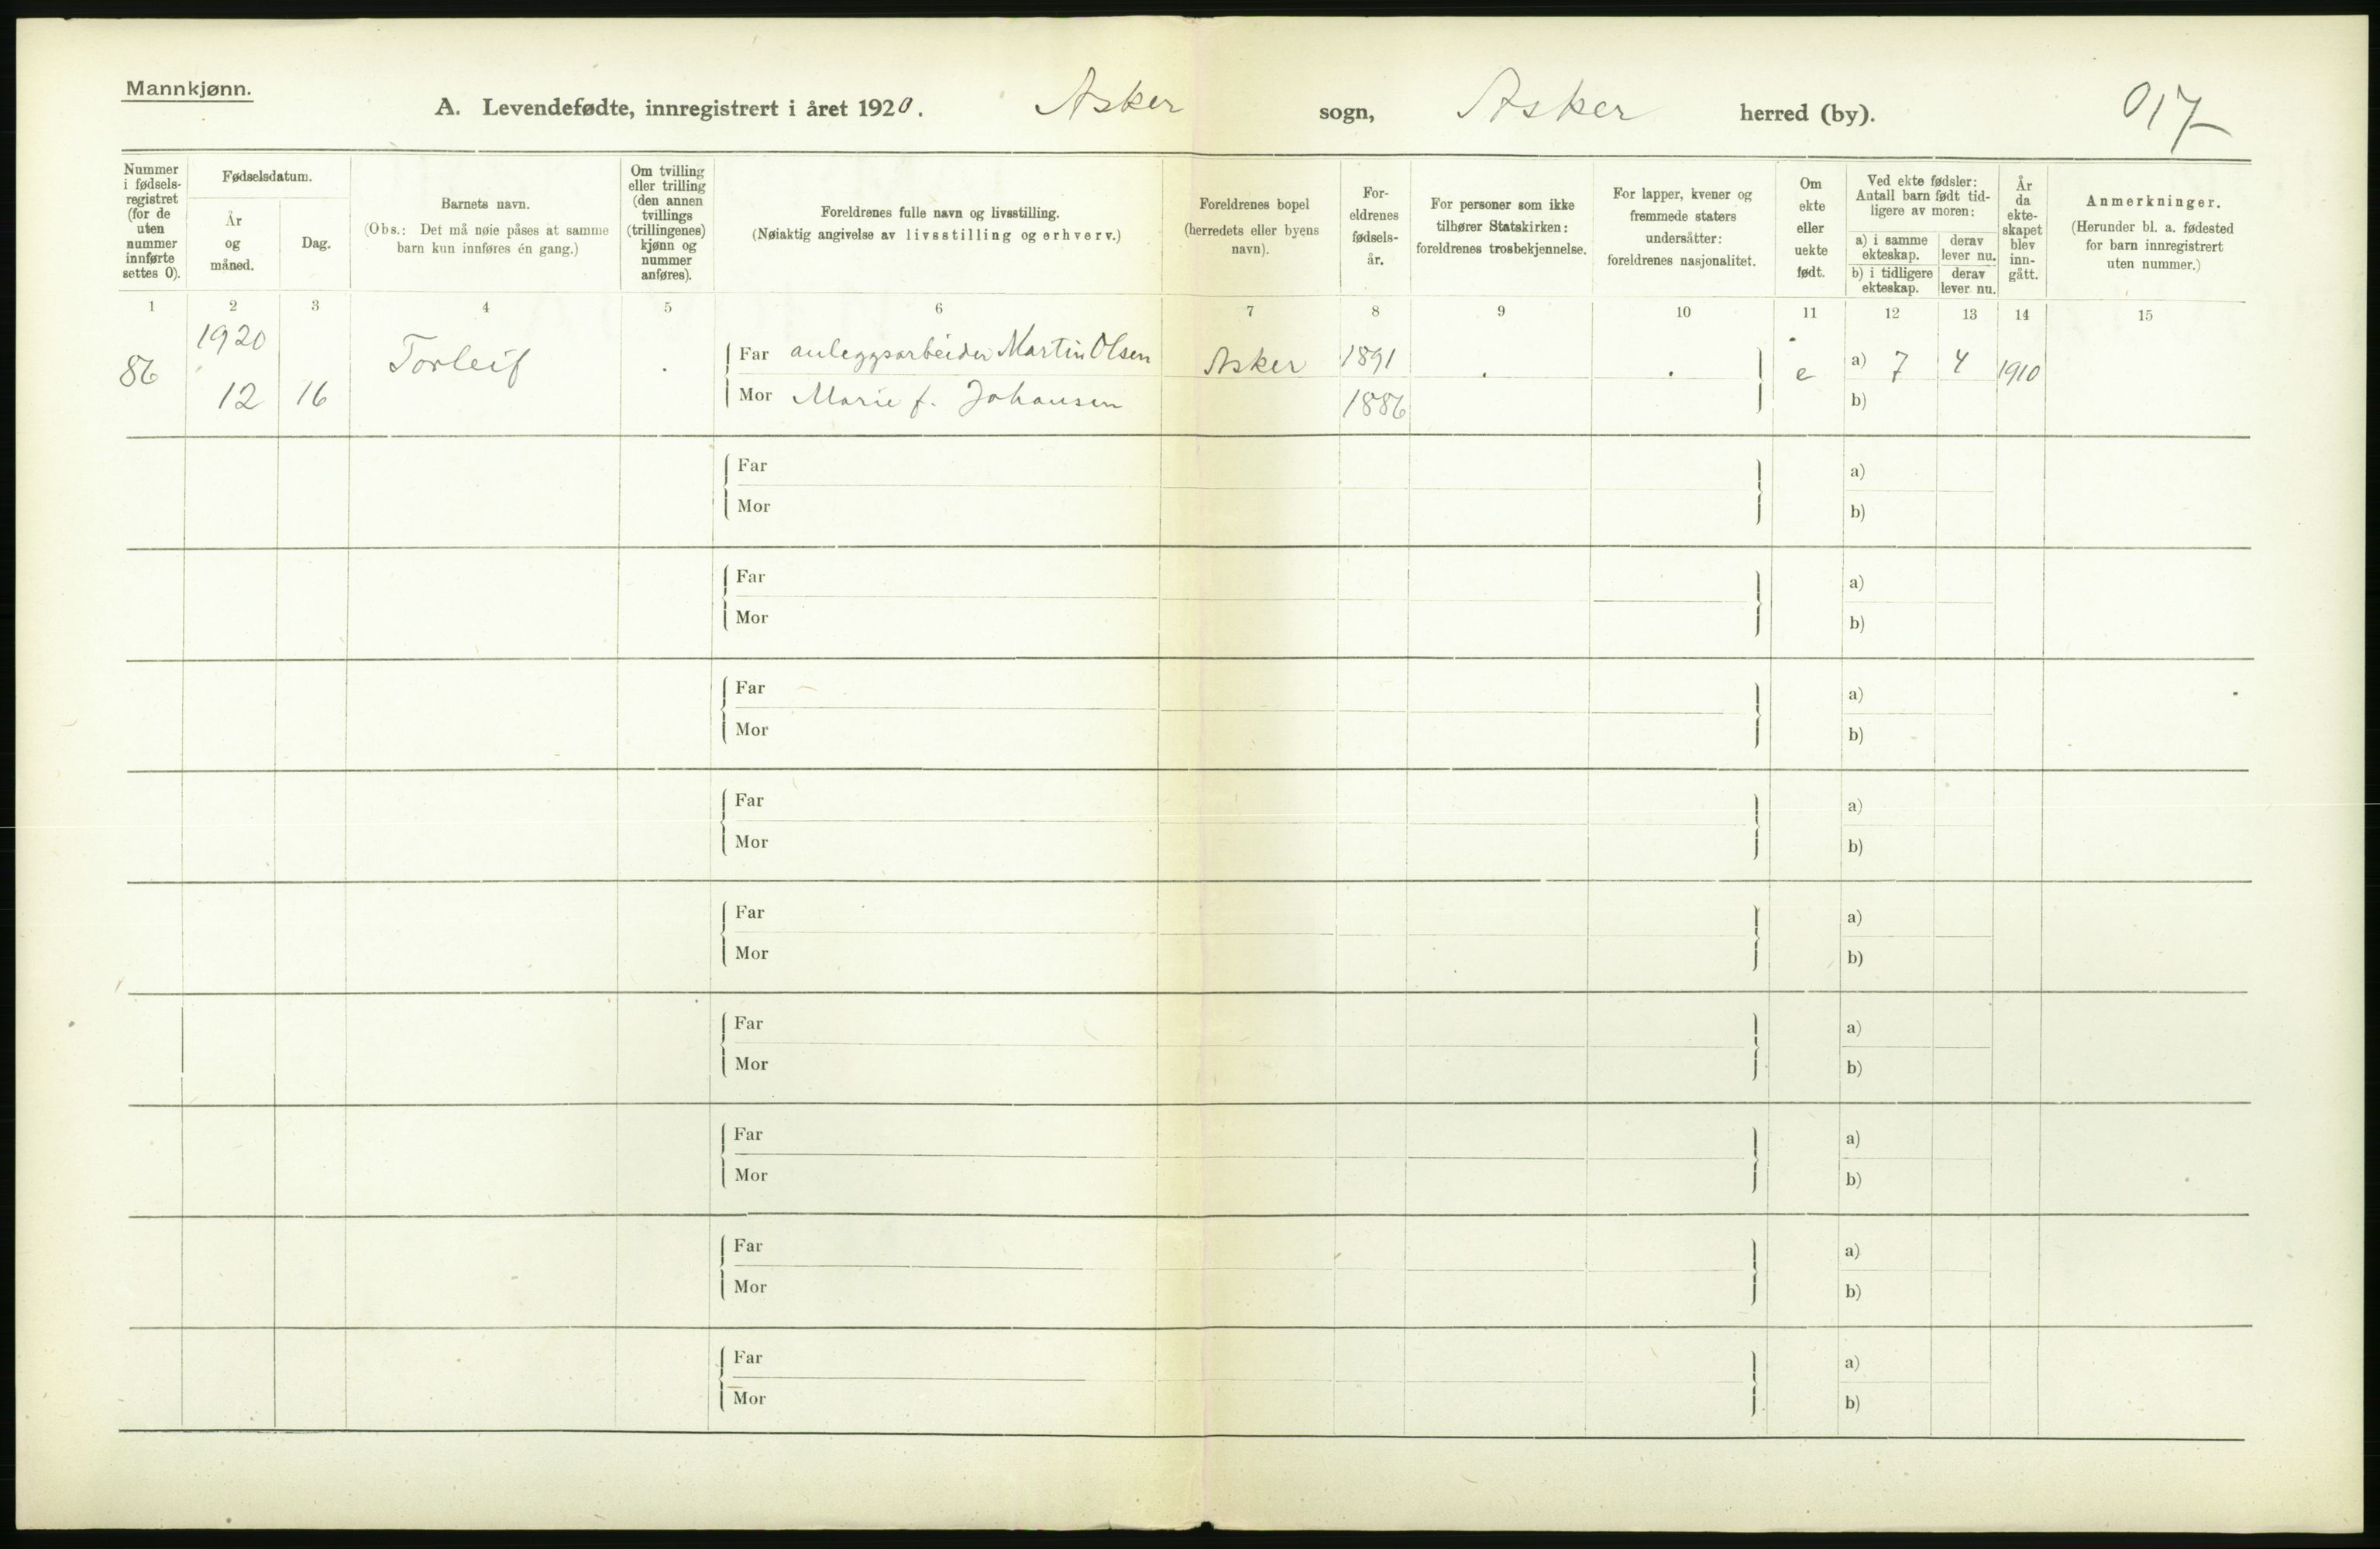 Mannkjønn.
A. Levendefødte, innregistrert i året 1920. Asker sogn, Asker herred (by). 017
Nummer
i fødsels-
registret
(for de
uten
nummer
innførte
settes 0).
Fødselsdatum.
År
og
måned.
Dag.
Barnets navn.
(Obs.: Det må nøie påses at samme
barn kun innføres én gang.)
Om tvilling
eller trilling
(den annen
tvillings
(trillingenes)
kjønn og
nummer
anføres).
Foreldrenes fulle navn og livsstilling.
(Nøiaktig angivelse av livsstilling og erhverv.)
Foreldrenes bopel
(herredets eller byens
navn).
For-
eldrenes
fødsels-
år.
For personer som ikke
tilhører Statskirken:
foreldrenes trosbekjennelse.
For lapper, kvener og
fremmede staters
undersåtter:
foreldrenes nasjonalitet.
Om
ekte
eller
uekte
født.
Ved ekte fødsler:
Antall barn født tid-
ligere av moren:
a) i samme
ekteskap.
derav
lever nu.
b) i tidligere
ekteskap.
derav
lever nu.
År
da
ekte-
skapet
blev
inn-
gått.
Anmerkninger.
(Herunder bl. a. fødested
for barn innregistrert
uten nummer.)
1 2 3 4 5 6 7 8 9 10 11 12 13 14 15
1920
86 12 16 Torleif .
Far anleggsarbeider Martin Olsen Asker 1891 . . e a) 7 4 1910
Mor Marie f. Johansen 1886 b)
Far a)
Mor b)
Far a)
Mor b)
Far a)
Mor b)
Far a)
Mor b)
Far a)
Mor b)
Far a)
Mor b)
Far a)
Mor b)
Far a)
Mor b)
Far a)
Mor b)